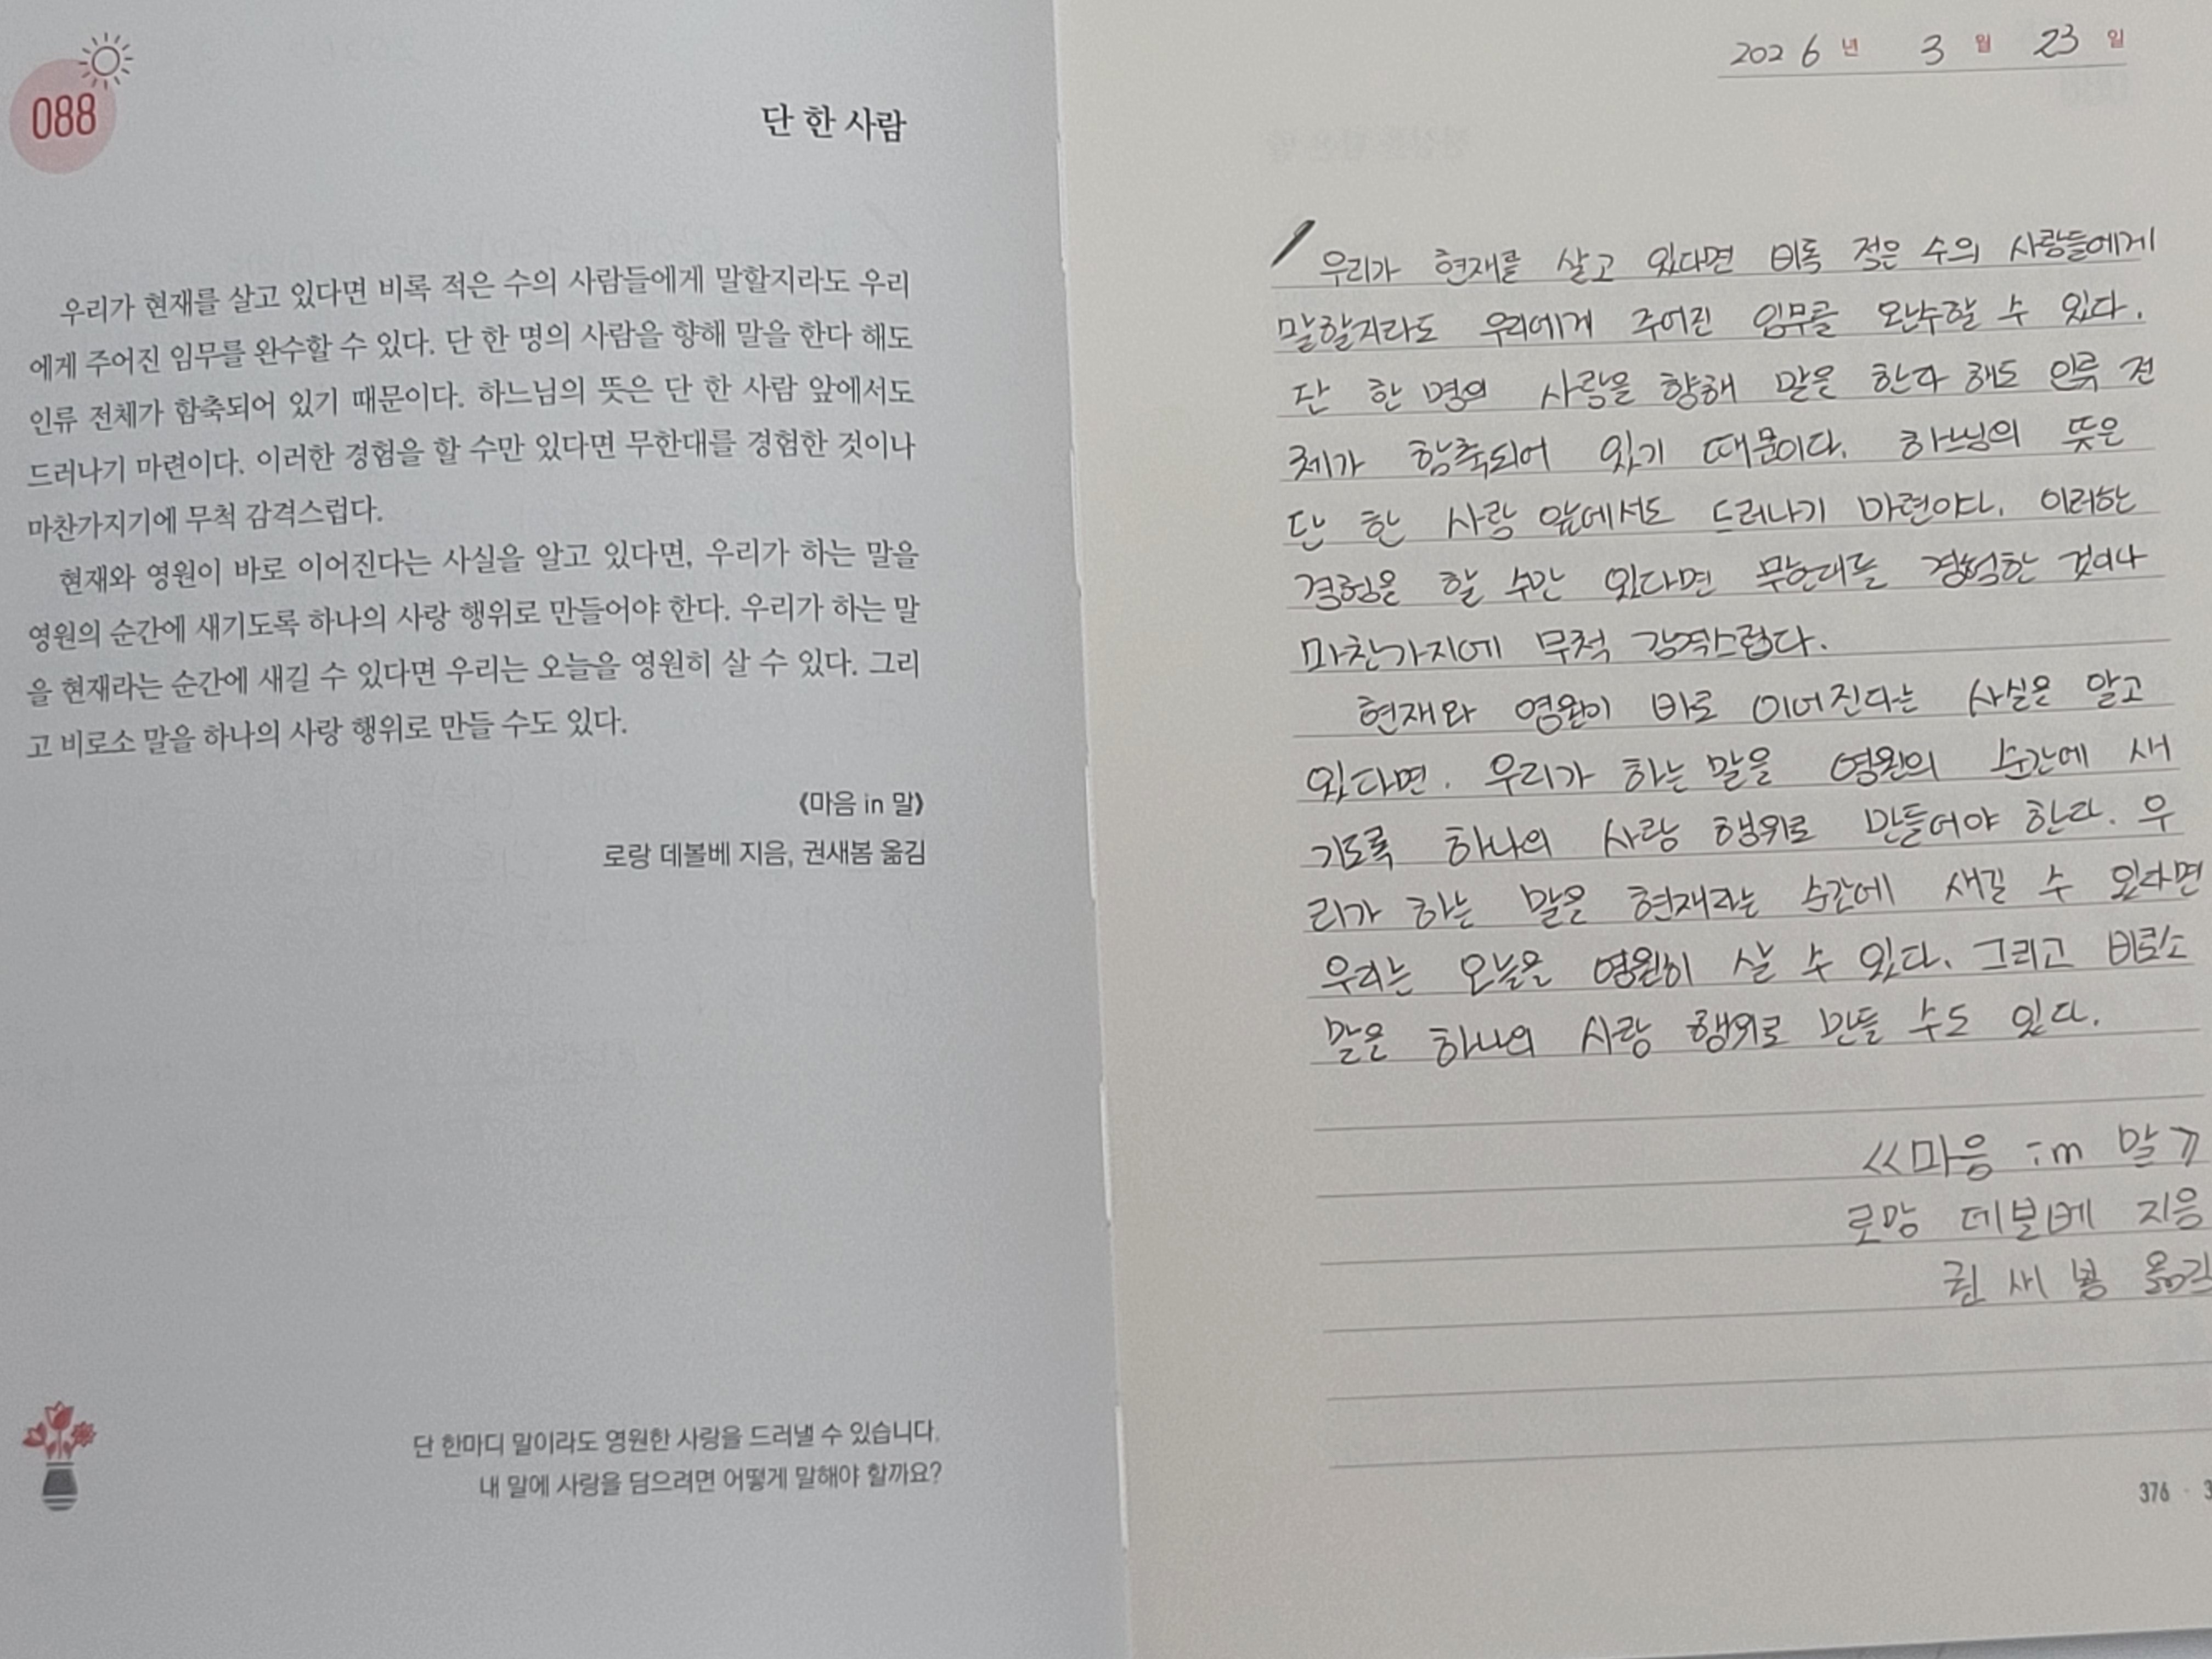 088
단 한 사람
우리가 현재를 살고 있다면 비록 적은 수의 사람들에게 말할지라도 우리
에게 주어진 임무를 완수할 수 있다. 단 한 명의 사람을 향해 말을 한다 해도
인류 전체가 함축되어 있기 때문이다. 하느님의 뜻은 단 한 사람 앞에서도
드러나기 마련이다. 이러한 경험을 할 수만 있다면 무한대를 경험한 것이나
마찬가지기에 무척 감격스럽다.
현재와 영원이 바로 이어진다는 사실을 알고 있다면, 우리가 하는 말을
영원의 순간에 새기도록 하나의 사랑 행위로 만들어야 한다. 우리가 하는 말
을 현재라는 순간에 새길 수 있다면 우리는 오늘을 영원히 살 수 있다. 그리
고 비로소 말을 하나의 사랑 행위로 만들 수도 있다.
《마음 in 말》
로랑 데볼베 지음, 권새봄 옮김
단 한마디 말이라도 영원한 사랑을 드러낼 수 있습니다.
내 말에 사랑을 담으려면 어떻게 말해야 할까요?
2026년 3월 23일
우리가 현재를 살고 있다면 비록 적은 수의 사람들에게
말할지라도 우리에게 주어진 임무를 완수할 수 있다.
단 한 명의 사람을 향해 말을 한다 해도 인류 전
체가 함축되어 있기 때문이다. 하느님의 뜻은
단 한 사람 앞에서도 드러나기 마련이다. 이러한
경험을 할 수만 있다면 무한대를 경험한 것이나
마찬가지에 무척 감격스럽다.
현재와 영원이 바로 이어진다는 사실을 알고
있다면. 우리가 하는 말을 영원의 순간에 새
기도록 하나의 사랑 행위로 만들어야 한다. 우
리가 하는 말을 현재라는 순간에 새길 수 있다면
우리는 오늘을 영원히 살 수 있다. 그리고 비로소
말을 하나의 사랑 행위로 만들 수도 있다.
《마음 in 말》
로랑 데볼베 지음
권새봄 옮김
376